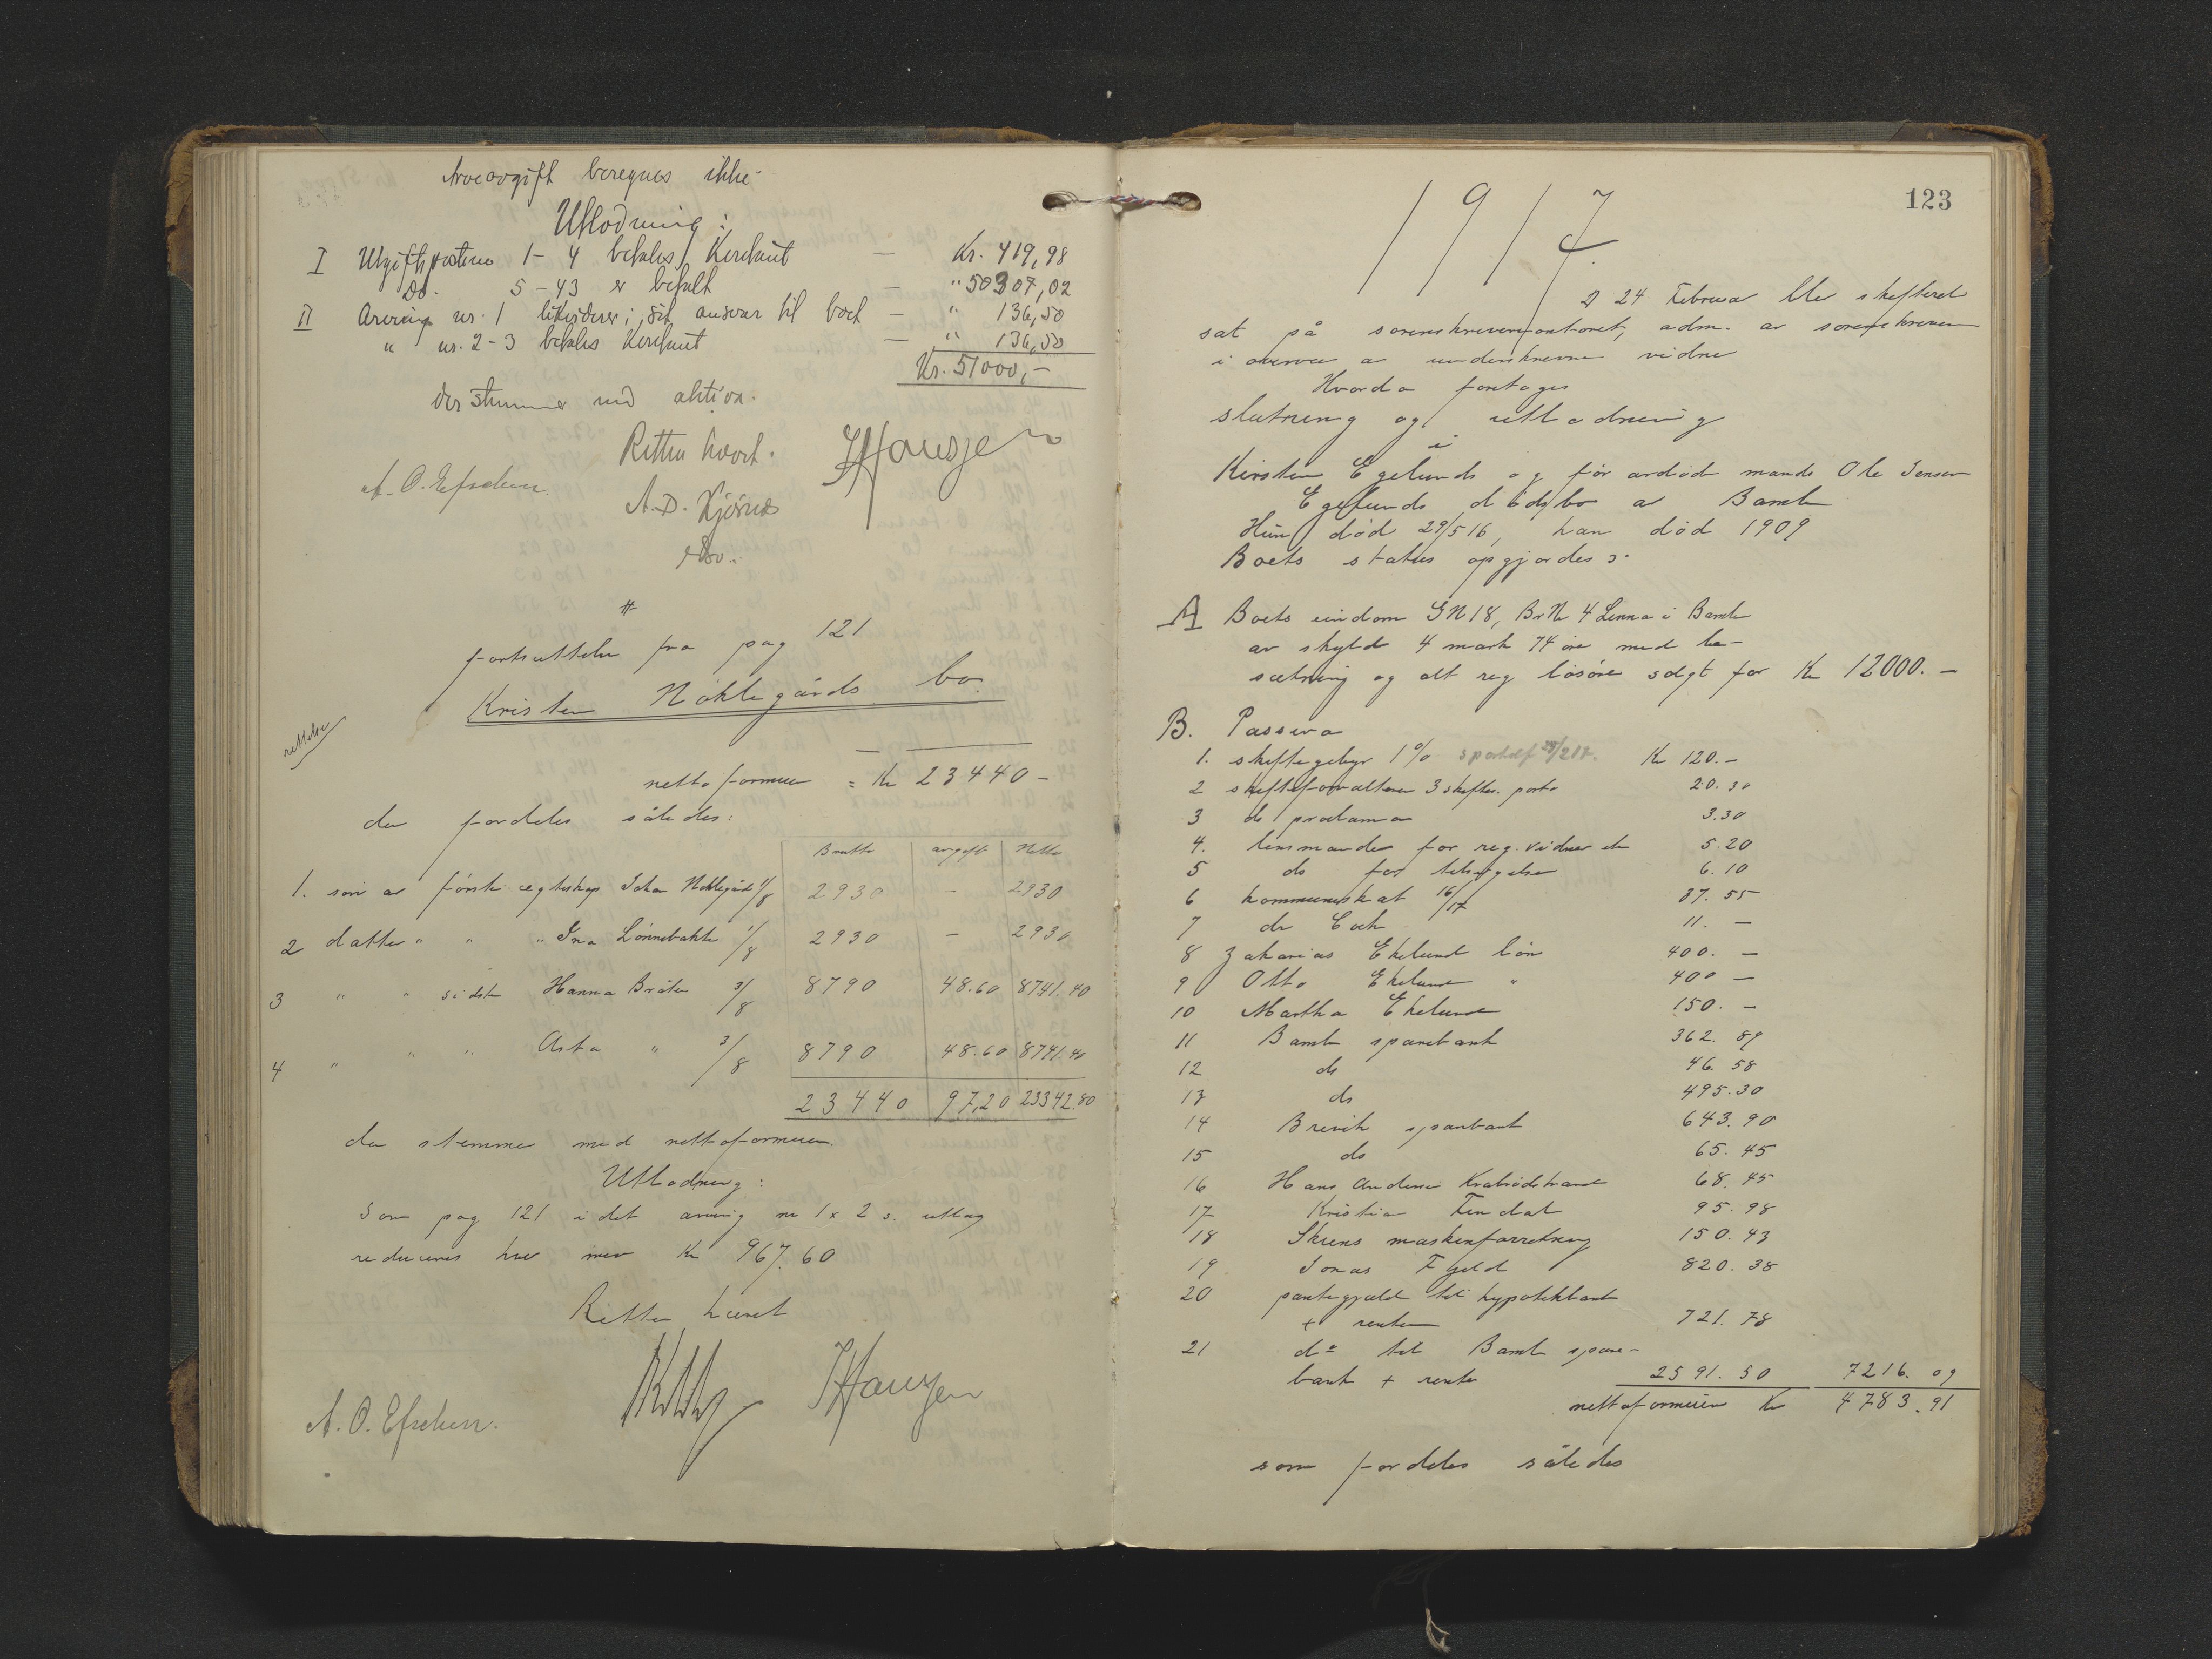 Arveavgift beregnes ikke
Utlodning:
I Utgiftspostene 1-4 betales kontant — Kr. 419,98
Do. 5-43 er betalt — " 50307,02
II Arving nr. 1 likviderer i sit ansvar til boet — " 136,50
" nr. 2-3 betales kontant — " 136,50
Kr. 51000,-
der stemmer med aktiva.
Retten hævet.
A. O. Efschen.
fortsættelse fra pag 121
Kristen Noklegårds bo
rettelse
netto formue = Kr 23440-
der fordeles således:
Brutto avgift Netto
1. søn av første ægteskap Johan Noklegård 1/8 2930 - 2930
2 datter " " " Ina Lønnebakke 1/8 2930 - 2930
3 " " sidste Hanna Bråten 3/8 8790 48.60 8741.40
4 " " " Asta " 3/8 8790 48.60 8741.40
23440 97,20 23342.80
der stemmer med nettoformuen.
Utlodning:
Som pag 121 idet arving nr 1 & 2 s. utlæg
reduceres hver med Kr 967.60
Retten hævet
A. O. Efschen.
123
1917
D 24 Februar blev skifteret
sat på sorenskriverkontoret, adm. av sorenskriveren
i overvær av underskrevne vidner
Hvorda foretoges
slutning og utlodning
i
Kirsten Egelunds og før avdød mands Ole Jensen
Egelunds dødsbo av Bamle
Hun død 29/5 16, han død 1909
Boets status opgjordes:
A Boets eindom GN 18, BrN 4 Lenna i Bamle
av skyld 4 mark 74 øre med be-
sætning og alt reg løsøre solgt for Kr 12000.-
B. Passiva
1. skiftegebyr 1% Kr 120.-
2 skifteforvalteren 3 skifter. porto 20.30
3 do proclama 3.30
4. lensmanden for reg. vidner etc 5.20
5 do for tilsigelse 6.10
6 kommuneskat 16/17 37.55
7 do 11.-
8 Zakarias Ekelund løn 400.-
9 Otto Ekelund " 400-
10 Martha Ekelund 150.-
11 Bamle sparebank 362.89
12 do 46.58
13 do 495.30
14 Brevik sparebank 643.90
15 do 65.45
16 Hans Andersen 68.45
17 Kristian Findal 95.98
18 Skiens maskinforretning 150.43
19 Jonas Fjeld 820.38
20 pantegjæld til hypotekbank
+ renter 721.78
21 do til Bamle spare-
bank + renter 2591.50 7216.09
nettoformuen Kr 4783.91
som fordeles således